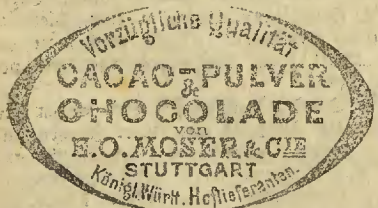 Vorzügliche Qualität
CACAO-PULVER
&
CHOCOLADE
von
E.O.MOSER & CIE
STUTTGART
Königl.Württ. Hoflieferanten.